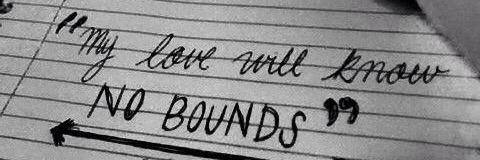 "My love will know
NO BOUNDS"